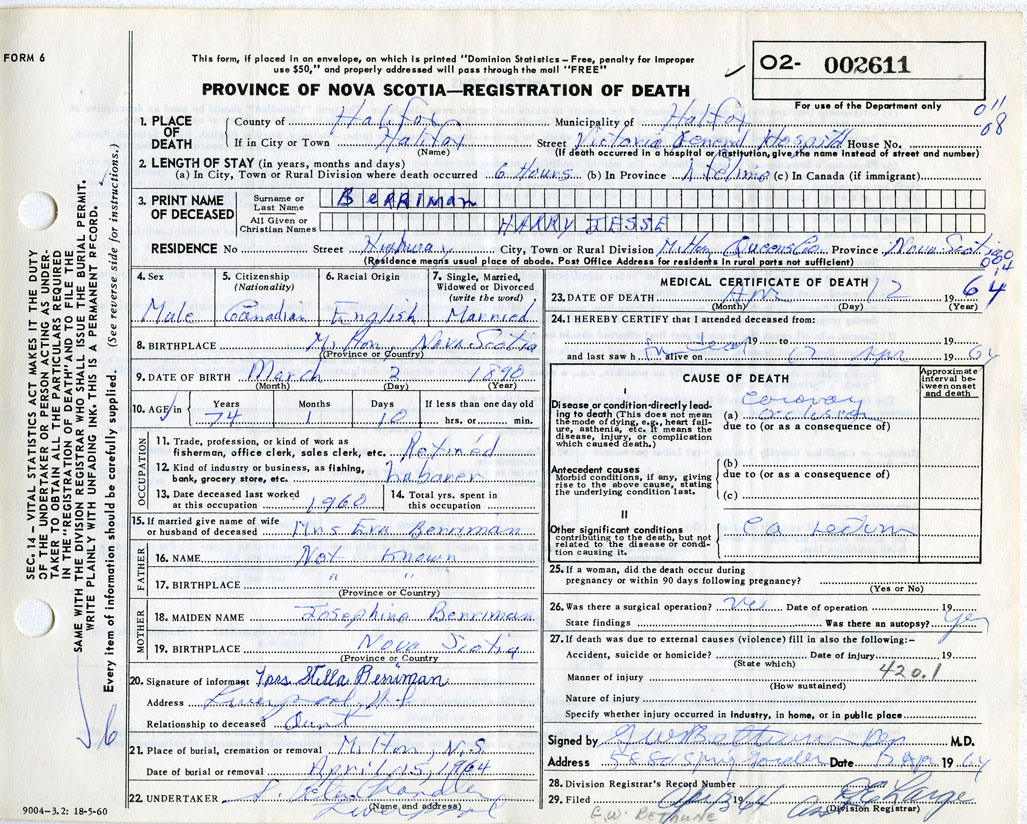 FORM 6
This form, if placed in an envelope, on which is printed "Dominion Statistics – Free, penalty for improper
use $50," and properly addressed will pass through the mail "FREE"
O2- 002611
For use of the Department only
PROVINCE OF NOVA SCOTIA—REGISTRATION OF DEATH
011
08
1. PLACE OF DEATH
County of Halifax Municipality of Halifax
If in City or Town Halifax Street Victoria General Hospital House No.
(Name) (If death occurred in a hospital or institution, give the name instead of street and number)
2. LENGTH OF STAY (in years, months and days)
(a) In City, Town or Rural Division where death occurred 6 Hours (b) In Province (c) In Canada (if immigrant)
3. PRINT NAME OF DECEASED
Surname or Last Name BERRIMAN
All Given or Christian Names HARRY JESSE
RESIDENCE No Street Highway City, Town or Rural Division Milton Queens Co. Province Nova Scotia
(Residence means usual place of abode. Post Office Address for residents in rural parts not sufficient)
4. Sex 5. Citizenship (Nationality) 6. Racial Origin 7. Single, Married, Widowed or Divorced (write the word)
Male Canadian English Married
8. BIRTHPLACE Milton, Nova Scotia
(Province or Country)
9. DATE OF BIRTH March 2 1890
(Month) (Day) (Year)
10. AGE in Years Months Days If less than one day old
74 1 10 hrs. or min.
OCCUPATION
11. Trade, profession, or kind of work as
fisherman, office clerk, sales clerk, etc. Retired
12. Kind of industry or business, as fishing,
bank, grocery store, etc. Labaner
13. Date deceased last worked at this occupation 1960
14. Total yrs. spent in this occupation
15. If married give name of wife
or husband of deceased Mrs Eva Berriman
FATHER
16. NAME Not Known
17. BIRTHPLACE " "
(Province or Country)
MOTHER
18. MAIDEN NAME Josephine Berriman
19. BIRTHPLACE Nova Scotia
(Province or Country)
20. Signature of informant Mrs Stella Berriman
Address Liverpool, N.S.
Relationship to deceased Aunt
21. Place of burial, cremation or removal Milton, N.S.
Date of burial or removal April, 15, 1964
22. UNDERTAKER Chandler
(Name and address)
Liverpool
9004—3.2: 18-5-60
MEDICAL CERTIFICATE OF DEATH
23. DATE OF DEATH Apr 12 1964
(Month) (Day) (Year)
24. I HEREBY CERTIFY that I attended deceased from:
19 to 19
and last saw h alive on 12 Apr 1964
CAUSE OF DEATH
Approximate interval between onset and death
I
Disease or condition directly leading to death (This does not mean the mode of dying, e.g., heart failure, asthenia, etc. It means the disease, injury, or complication which caused death.)
(a) Coronary occlusion
due to (or as a consequence of)
Antecedent causes
Morbid conditions, if any, giving rise to the above cause, stating the underlying condition last.
(b)
due to (or as a consequence of)
(c)
II
Other significant conditions contributing to the death, but not related to the disease or condition causing it.
Ca rectum
25. If a woman, did the death occur during
pregnancy or within 90 days following pregnancy?
(Yes or No)
26. Was there a surgical operation? Yes Date of operation 19
State findings Was there an autopsy? Yes
27. If death was due to external causes (violence) fill in also the following:–
Accident, suicide or homicide? Date of injury 19
(State which)
Manner of injury 420.1
(How sustained)
Nature of injury
Specify whether injury occurred in industry, in home, or in public place
Signed by G W Bethune M.D.
Address Spring Garden Date 13 Apr 1964
28. Division Registrar's Record Number
29. Filed 1964
(Division Registrar)
G.W. BETHUNE
SEC. 14 – VITAL STATISTICS ACT MAKES IT THE DUTY
OF THE UNDERTAKER OR PERSON ACTING AS UNDER-
TAKER TO OBTAIN ALL THE PARTICULARS REQUIRED
IN THE "REGISTRATION OF DEATH" AND TO FILE THE
SAME WITH THE DIVISION REGISTRAR WHO SHALL ISSUE THE BURIAL PERMIT.
WRITE PLAINLY WITH UNFADING INK. THIS IS A PERMANENT RECORD.
Every item of information should be carefully supplied. (See reverse side for instructions.)
6